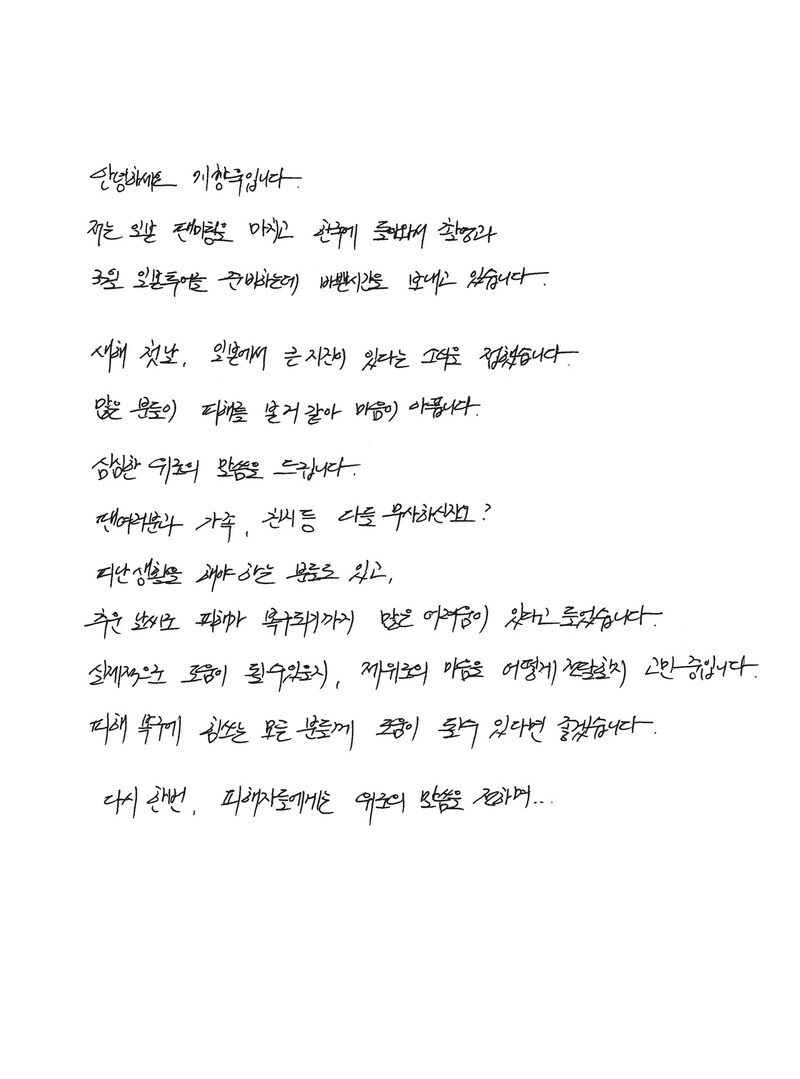 안녕하세요 지창욱입니다.
저는 일본 팬미팅을 마치고 한국에 돌아와서 촬영과
3월 일본투어를 준비하는데 바쁜시간을 보내고 있습니다.
새해 첫날, 일본에서 큰 지진이 있다는 소식을 접했습니다.
많은 분들이 피해를 본거 같아 마음이 아픕니다.
심심한 위로의 말씀을 드립니다.
팬여러분과 가족, 친지등 다들 무사하신지요?
피난생활을 해야 하는 분들도 있고,
추운 날씨로 피해가 복구되기까지 많은 어려움이 있다고 들었습니다.
실제적으로 도움이 될수있을지, 제 위로의 마음을 어떻게 전달할지 고민중입니다.
피해 복구에 힘쓰는 모든 분들께 도움이 될수 있다면 좋겠습니다.
다시 한번, 피해자들에게는 위로의 말씀을 전하며...